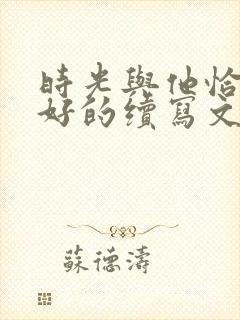 時光與他恰
好的續寫文
蘇德濤